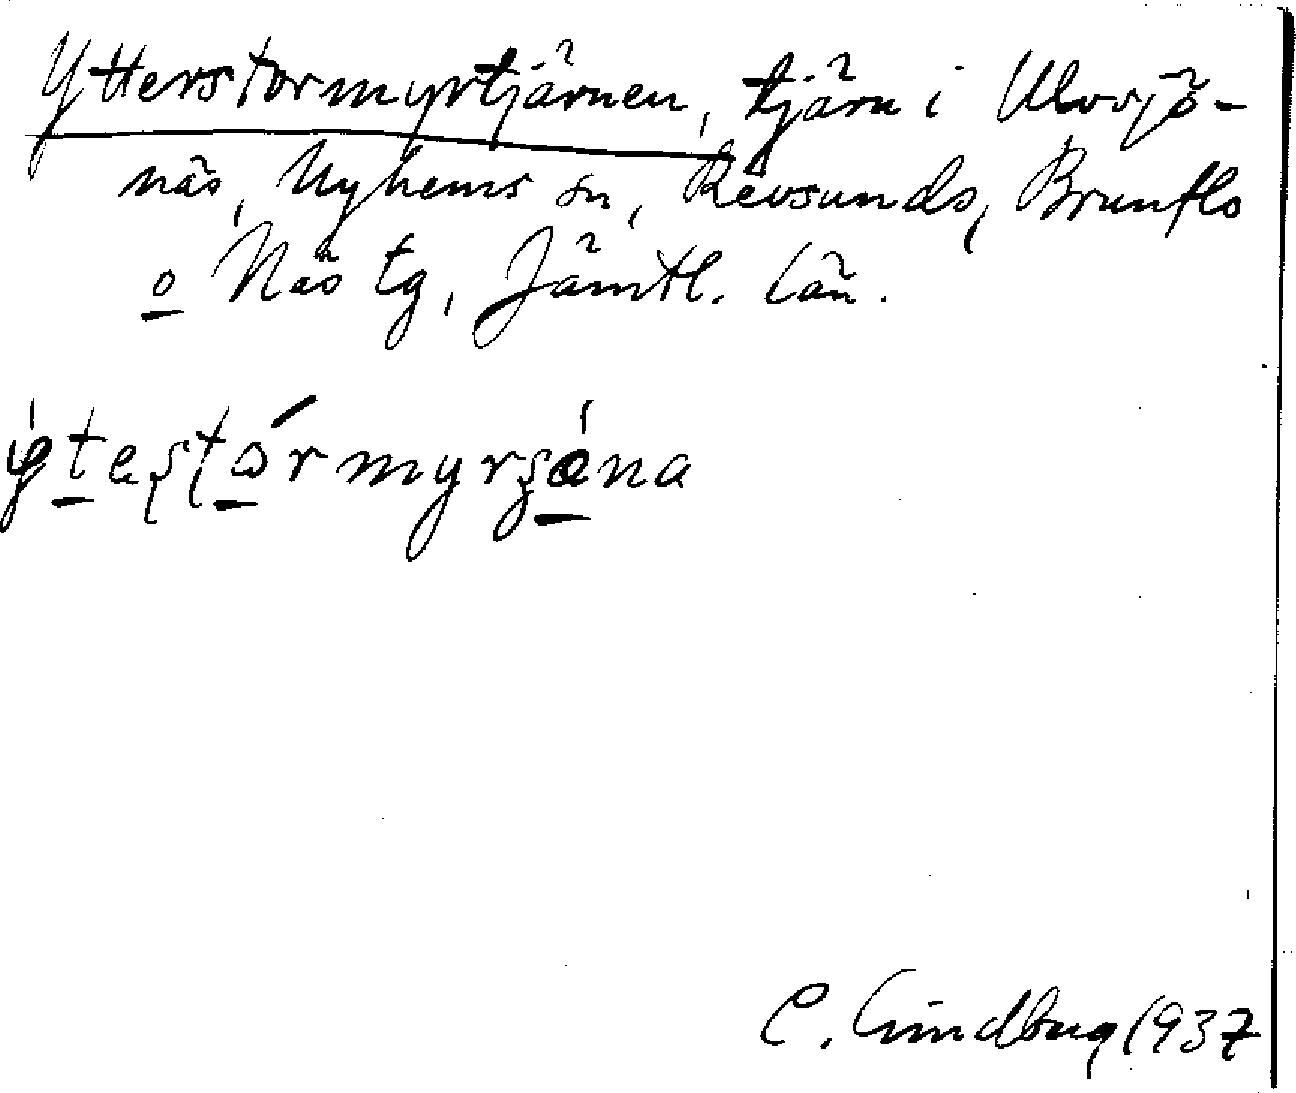 Ytterstormyrtjärnen, tjärn i Ulvsjö-
näs, Nyhems sn, Revsunds, Brunflo
o Näs tg, Jämtl. län.
C. Lindberg 1937